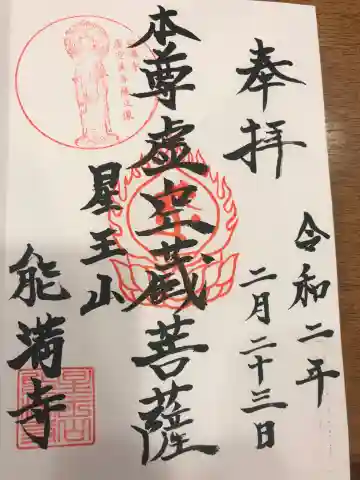 奉拝
令和二年
二月二十三日
本尊虚空蔵菩薩
星王山
能満寺